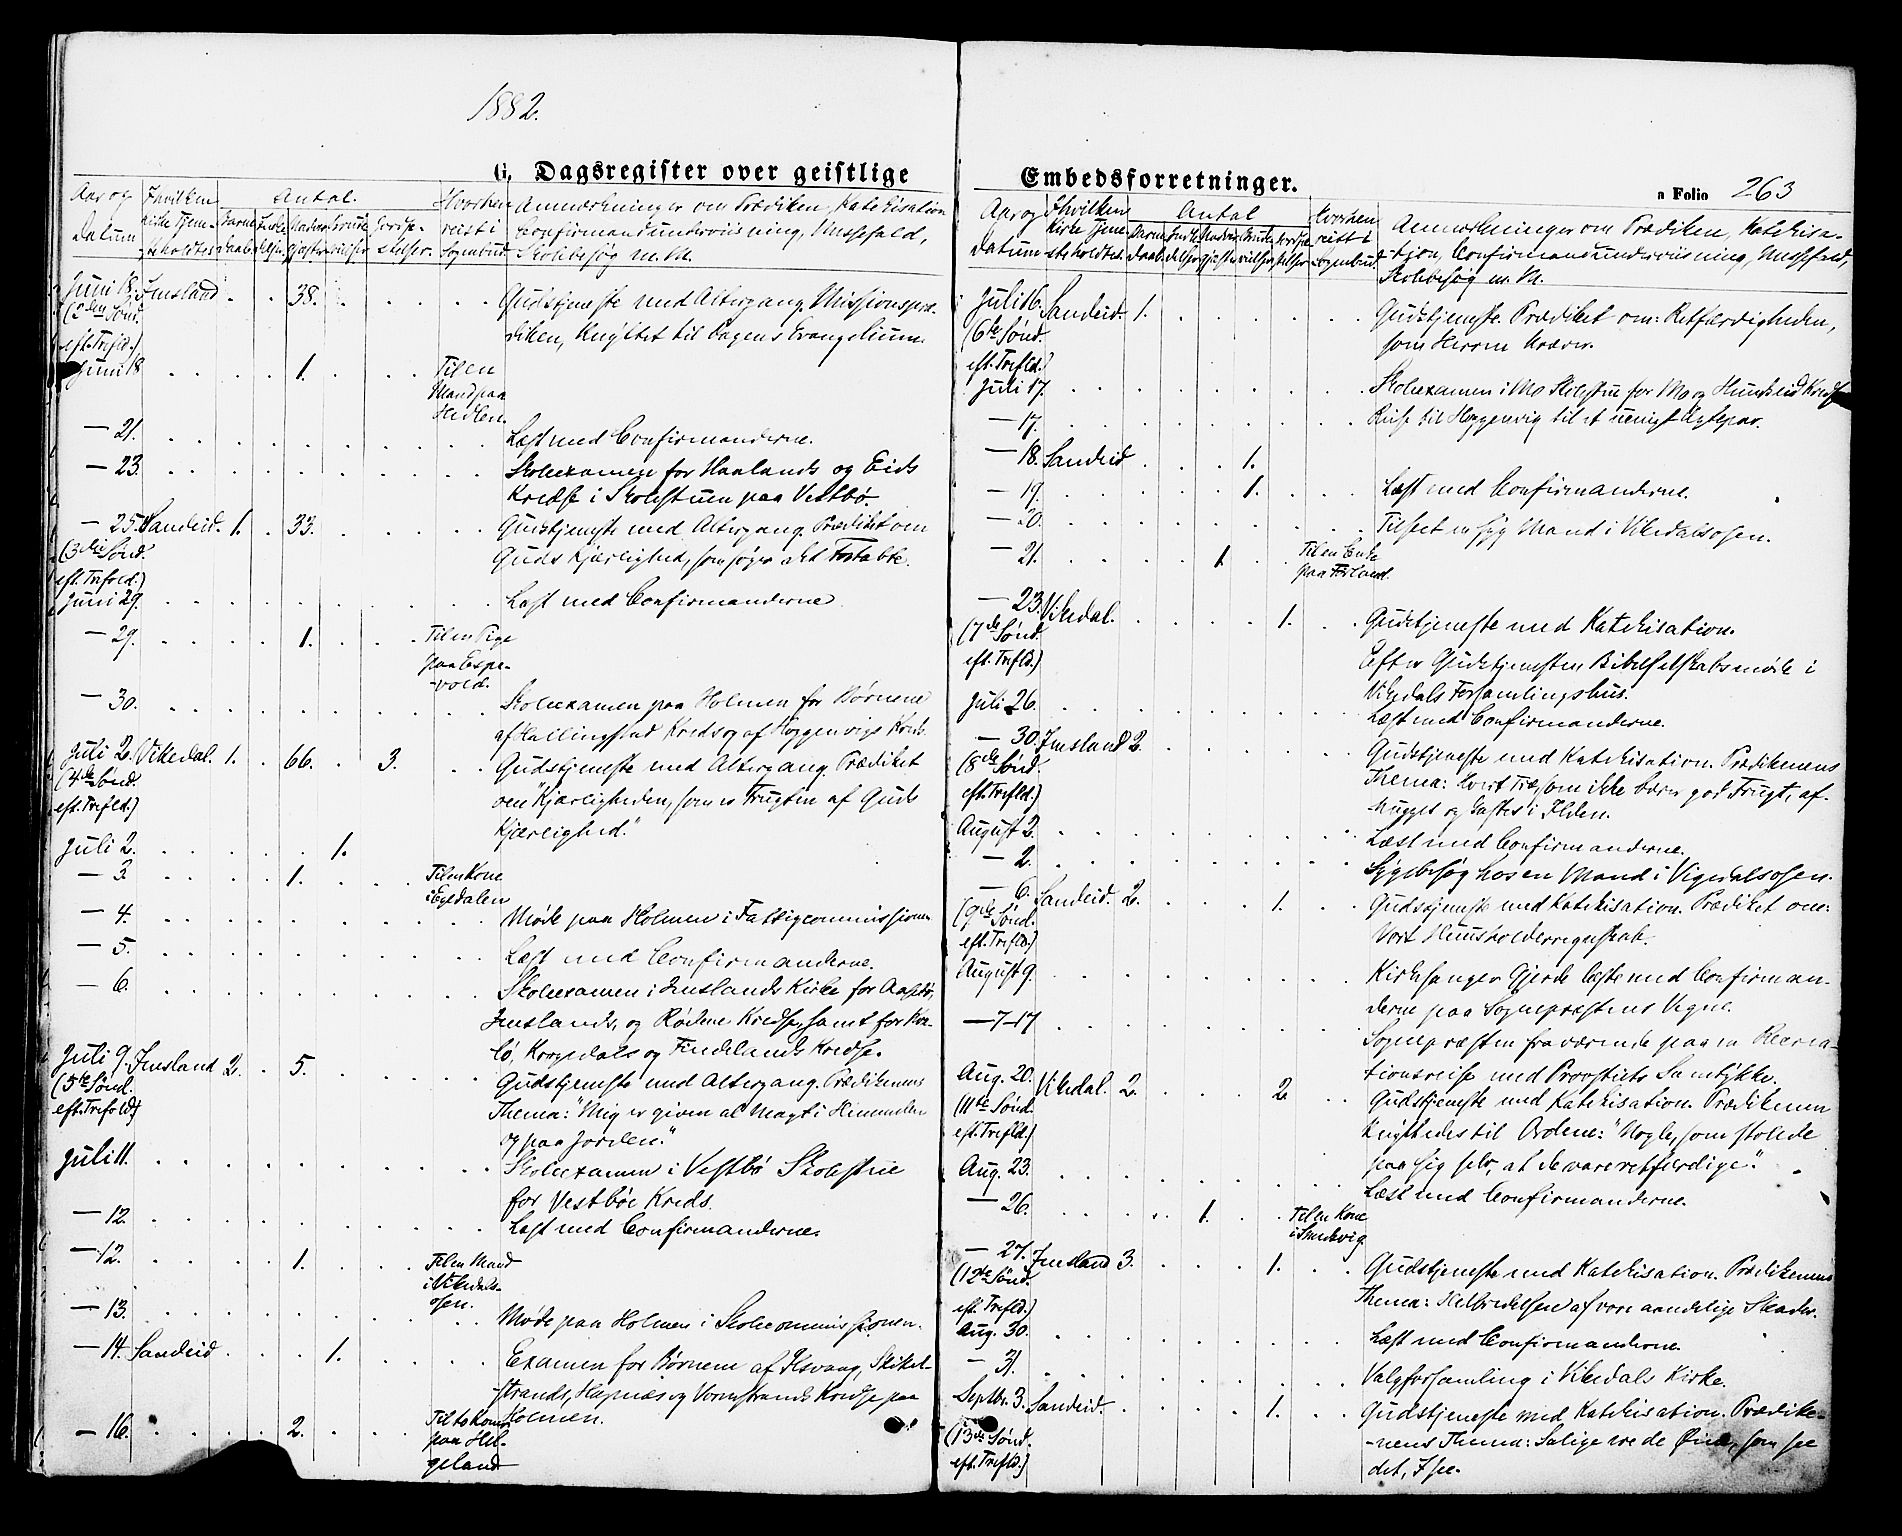 1882.
G. Dagsregister over geistlige
Aar og Datum
I hvilken Kirke Tjeneste holdtes
Antal.
Barnedaab.
Nadvergjester
Hvorhen reist i Sognebud.
Anmærkninger om Prædiken, Katekisation
Confirmandundervisning, Messefald,
Skolebesøg m. M.
Juni 18. Imsland . . 38. Gudstjeneste med Altergang. Missionspræ-
(2den Sønd. eft. Trefld.) diken, knyttet til Dagens Evangelium.
Juni 18 . . . 1. Til en Mand paa Hedlen.
— 21. Læst med Confirmanderne.
— 23. Skoleexamen for Haalands og Eids
Kredse i Skolestuen paa Vestbø.
— 25. Sandeid. 1. . 33. Gudstjeneste med Altergang. Prædiket om
(3die Sønd. eft. Trefold.) Guds Kjærlighed, som søger det Fortabte.
Juni 29. Læst med Confirmanderne
— 29. . . . 1. Til en Pige paa Espevold.
— 30. Skoleexamen paa Holmen for Børnene
af Hallingstad Kreds og af Høggenvigs Kreds.
Juli 2. Vikedal. 1. . 66. . 3. Gudstjeneste med Altergang. Prædiket
(4de Sønd. eft. Trefld.) om "Kjærligheden, som er Frugten af Guds
Kjærlighed."
Juli 2. . . . . 1.
— 3. . . . 1. Til en Kone i
— 4. Møde paa Holmen i Fattigcommissionen
— 5. Læst med Confirmanderne.
— 6. Skoleexamen i Imslands Kirke for
Imslands, og Rødne Kredse, samt for
og Kredse.
Juli 9. Imsland 2. . 5. Gudstjeneste med Altergang. Prædikenens
(5te Sønd. eft. Trefold.) Thema: "Mig er given al Magt i Himmelen
og paa Jorden."
Juli 11. Skoleexamen i Vestbø Skolestue
for Vestbøe Kreds.
— 12. Læst med Confirmanderne.
— 12. . . . 1. Til en Mand i Vikedalsosen.
— 13. Møde paa Holmen i Skolecommissionen.
— 14. Sandeid . . . 1. Examen for Børnene af
og Kredse paa
Holmen.
— 16. . . . 2. Til to Koner paa Helgeland
Embedsforretninger.
Folio 263
Aar og Datum
I hvilken Kirke Tjeneste holdtes.
Antal
Barnedaab.
Hvorhen reist i Sognebud.
Anmærkninger om Prædiken, Katekisa-
tion, Confirmandundervisning, Messefald,
Skolebesøg m. M.
Juli 16. Sandeid. 1. Gudstjeneste. Prædiket om: Retfærdigheden,
(6te Sønd. eft. Trefld.) som Herren kræver.
Juli 17. Skoleexamen i Mo Skolestue for Mo og Kredse
— 17. Reise til Høggenvig til et uenigt Ægtepar.
— 18. Sandeid . . . 1.
— 19. . . . 1. Læst med Confirmanderne.
— 20. Tilseet en syg Mand i Vikedalsosen.
— 21. . . . 1 Til en Enke paa
— 23. Vikedal. . . . 1. Gudstjeneste med Katekisation.
(7de Sønd. eft. Trefld.) Efter Gudstjenesten Bibelselskabsmøde i
Vikedals Forsamlingshus.
Juli 26. Læst med Confirmanderne.
— 30. Imsland 2. Gudstjeneste med Katekisation. Prædikenens
(8de Sønd. eft. Trefld.) Thema: Hvert Træ, som ikke bærer god Frugt, af-
hugges og kastes i Ilden.
August 2. Læst med Confirmanderne.
— 2. Sygebesøg hos en Mand i Vigedalsosen.
— 6. Sandeid. 2. . . . 1. Gudstjeneste med Katekisation. Prædiket om:
(9de Sønd. eft. Trefld.) Vort Huusholderregnskab.
August 9. Kirkesanger Gjerde læste med Confirman-
derne paa Sognepræstens Vegne.
— 7–17 Sognepræsten fraværende paa en Recrea-
tionsreise med Provstiets Samtykke.
Aug. 20. Vikedal. 2. . . . 2 Gudstjeneste med Katekisation. Prædikenen
(11te Sønd. eft. Trefld.) knyttedes til Ordene: "Nogle, som stolede
paa sig selv, at de vare retfærdige".
Aug. 23. Læst med Confirmanderne.
— 26. . . . 1. Til en Kone i Smedevig.
— 27. Imsland 3. . . . 1. Gudstjeneste med Katekisation. Prædikenens
(12te Sønd. eft. Trefld.) Thema: Helbredelsen af vore aandelige Skader.
Aug. 30. Læst med Confirmanderne.
— 31. Valgforsamling i Vikedals Kirke.
Septbr. 3. Sandeid. . . . 1. Gudstjeneste med Katekisation. Prædike-
(13de Sønd. eft. Trefld.) nens Thema: Salige ere de Øine, som see
det, I see.